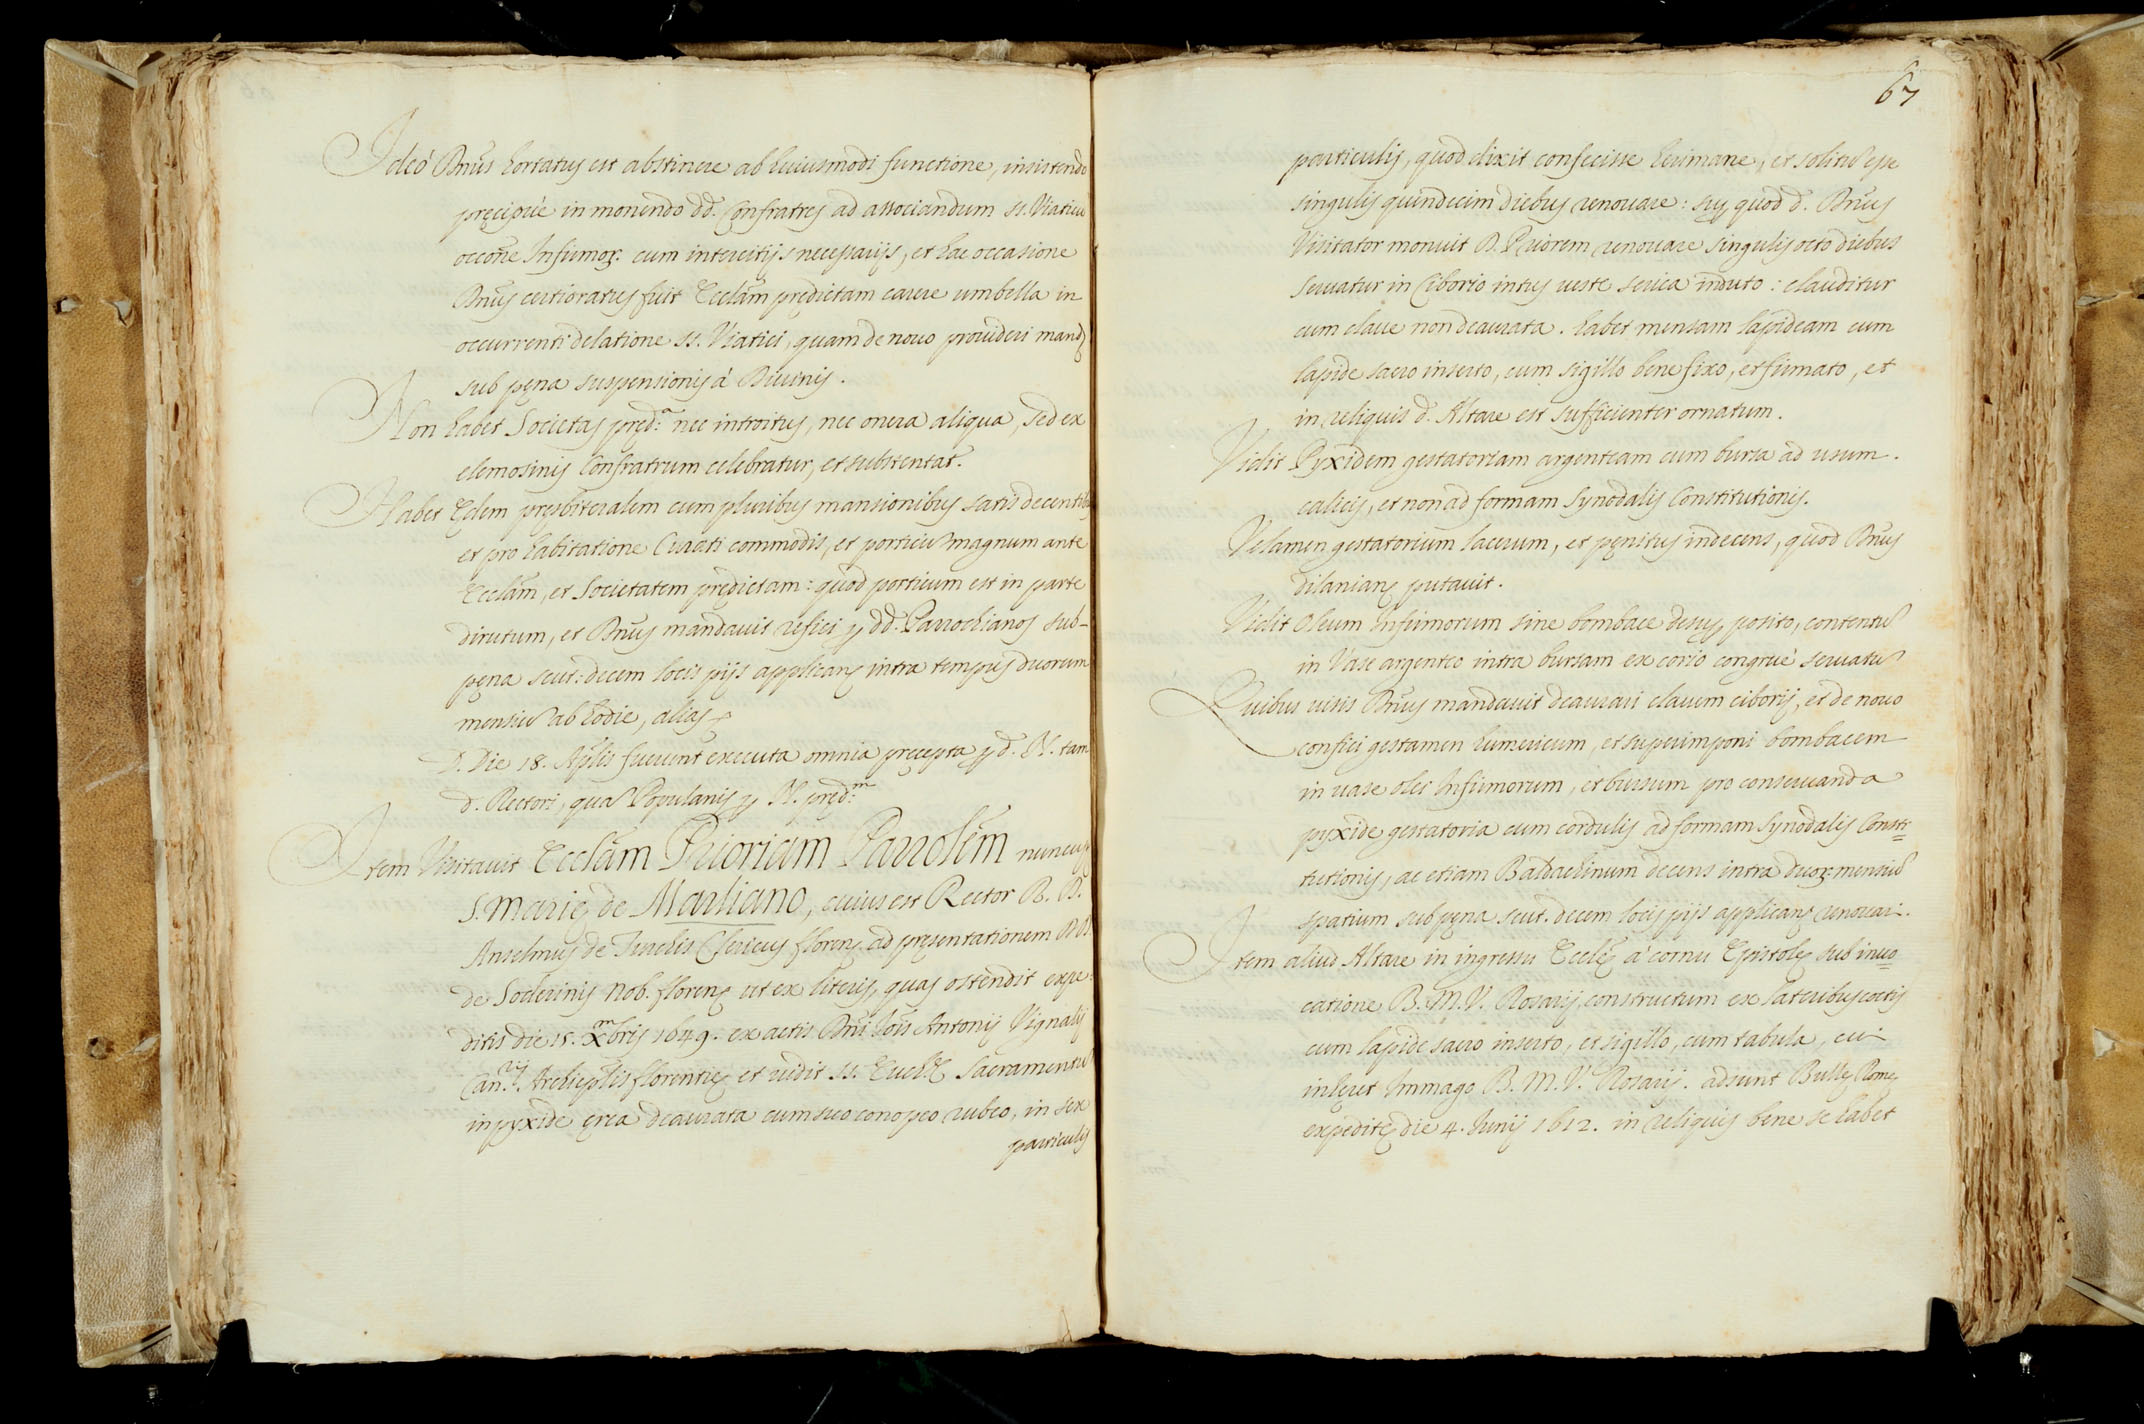 Ideò Dnũs hortatus est abstinere ab huiusmodi functione, insistendo
pręcipuè in monendo dd. Confratres ad associandum ss. Viaticũ
occoñe Infirmoꝝ. cum interritijs necessarijs, et hac occasione
Dnũs certioratus fuit Ecclãm prędictam carere umbella in
occurrenti delatione ss. Viatici, quam de nouo prouideri mandᵗ
sub pęna suspensionis à Diuinis.
Non habet Societas pręd.ᵃ nec introitus, nec onera aliqua, sed ex
elemosinis Confratrum celebratur, et substentat.
Habet Ędem pręsbiteralem cum pluribus mansionibus satis decentibus
et pro habitatione Curati commodis, et porticũ magnum ante
Ecclãm, et Societatem prędictam: quod porticum est in parte
dirutum, et Dnũs mandauit refici ꝑ dd. Parrochianos sub-
pęna scut: decem locis pijs applicanꝫ intra tempus duorum
mensiũ ab hodie, alias
D. Die 18. Aplis fuerunt executa omnia pręcepta ꝑ d. N. tam
d. Rectori, quã Popularis ꝑ N. pręd.ᵐ
Item Visitauit Ecclãm Prioriam Parrolẽm nuncup
S. Marię de Marliano, cuius est Rector R. D.
Anselmus de Clericus florenꝫ ad pręsentationem DD.
de Soderinis Nob. florenꝫ ut ex literis, quas ostendit expe-
ditis die 15. Xᵐbris 1649. ex actis Dni Iois Antonij Vignalij
Can.ʳⁱʲ Archiepalis florentię et vidit ss. Euch.ę Sacramentũ
in pyxide ęrea deaurata cum suo conopeo rubeo, in sex
particulis
67
particulis, quod dixit confecisse heri mane, et solitũ esse
singulis quindecim diebus renouare: suꝑ quod d. Dnũs
Visitator monuit D. Priorem renouare singulis octo diebus
seruatur in Ciborio intus ueste serica induto: clauditur
cum claue non deaurata. habet mensam lapideam cum
lapide sacro inserto, cum sigillo bene fixo, et firmato, et
in reliquis d. Altare est sufficienter ornatum.
Vidit Pyxidem gestatoriam argenteam cum bursa ad usum
calicis, et non ad formam Synodalis Constitutionis.
Velamen gestatorium lacerum, et pęnitus indecens, quod Dnũs
dilanianꝫ putauit.
Vidit Oleum Infirmorum sine bombace desuꝑ posito, contentũ
in Vase argenteo intra bursam ex corio congruè seruatũ
Quibus uisis Dnũs mandauit deaurari clauem ciborij, et de nouo
confici gestamen humericum, et superimponi bombacem
in uase olei Infirmorum, et bursam pro conseruanda
pyxide gestatoria cum cordulis ad formam Synodalis Consti=
tutionis, ac etiam Baldachinum decens intra duoꝝ mensiũ
spatium sub pęna scut. decem locis pijs applicanꝫ renouari.
Item aliud Altare in ingressu Ecclę à cornu Epistolę sub inuo=
catione B. M. V. Rosarij constructum ex lateribus coctis
cum lapide sacro inserto, et sigillo, cum tabula, cui
inhęret Immago B. M. V. Rosarij. adsunt Bullę Romę
expeditę die 4. Junij 1612. in reliquis bene se habet